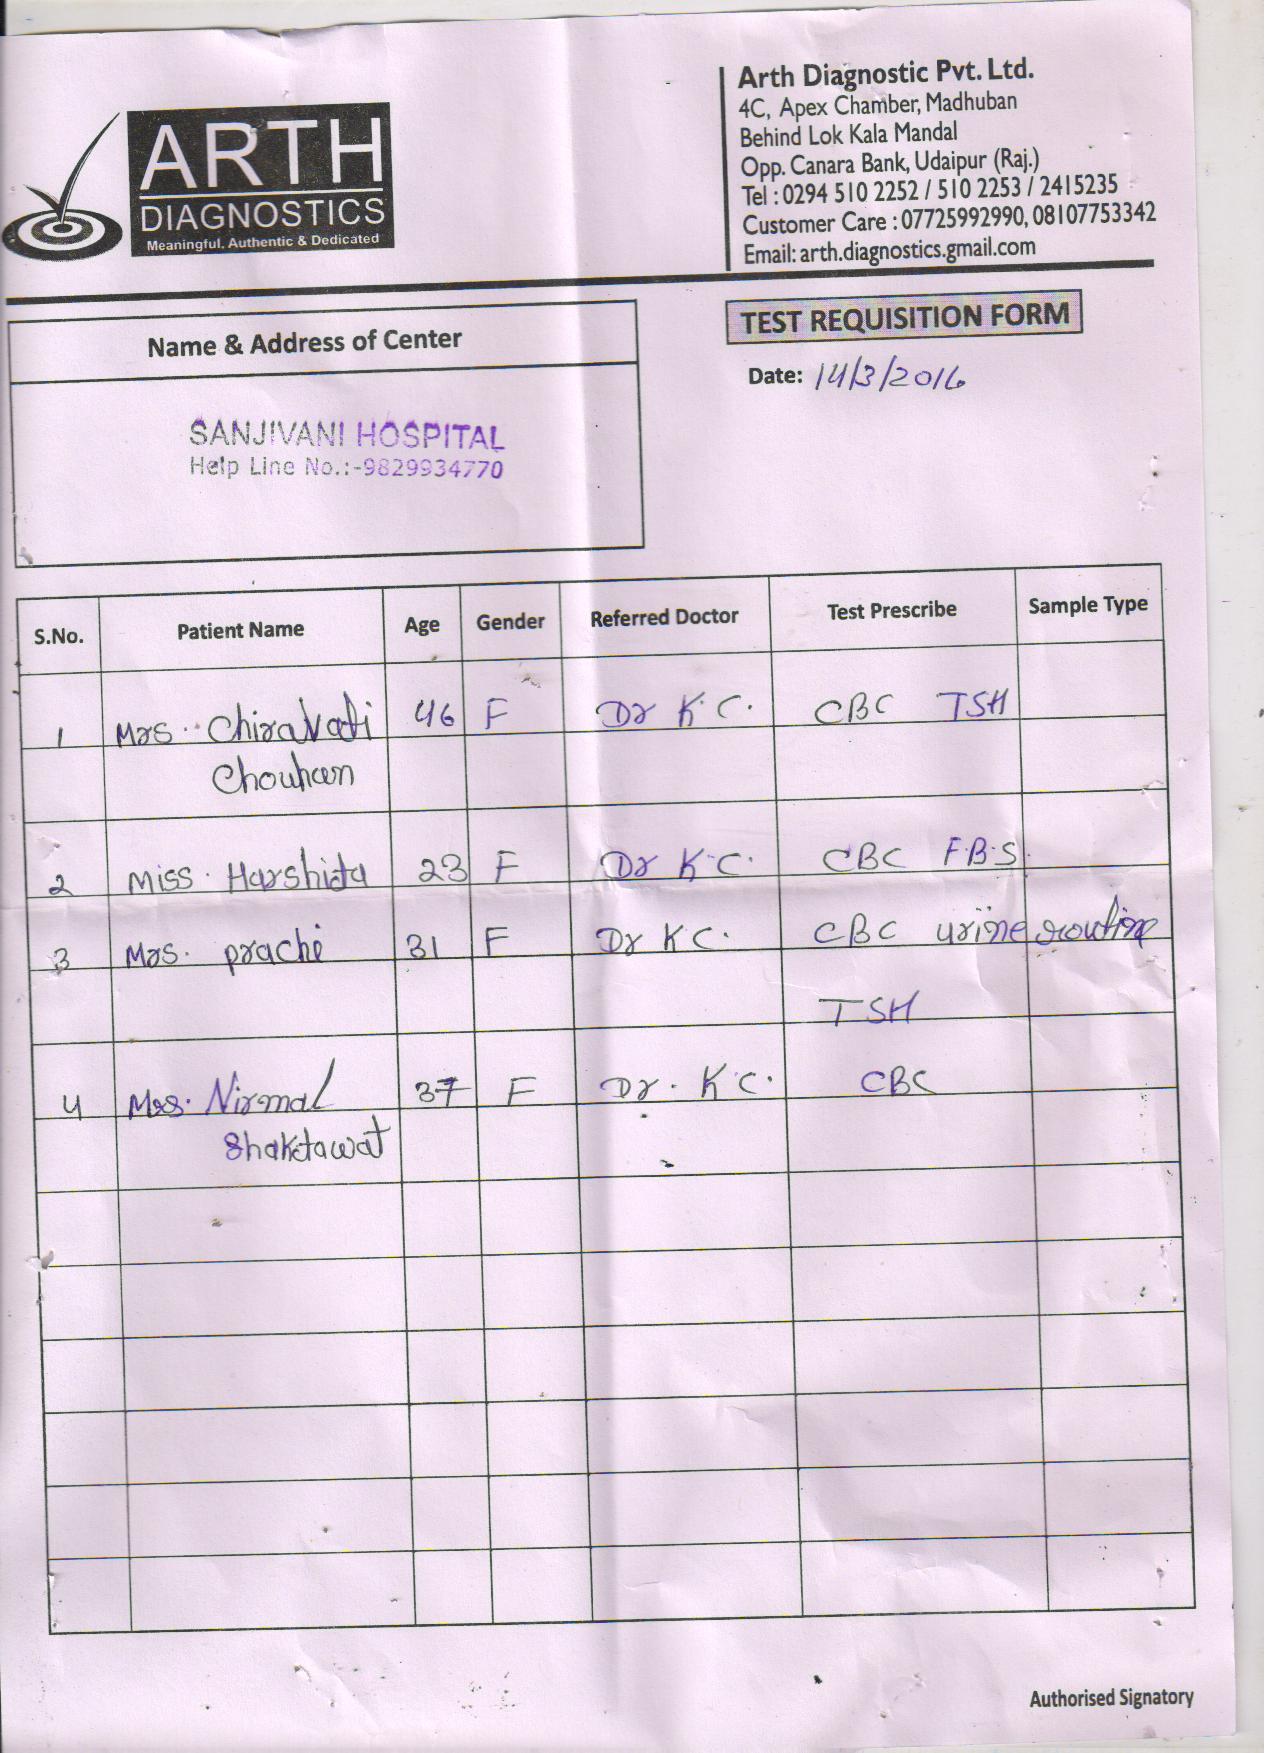 ARTH
DIAGNOSTICS
Meaningful, Authentic & Dedicated
Arth Diagnostic Pvt. Ltd.
4C, Apex Chamber, Madhuban
Behind Lok Kala Mandal
Opp. Canara Bank, Udaipur (Raj.)
Tel : 0294 510 2252 / 510 2253 / 2415235
Customer Care : 07725992990, 08107753342
Email: arth.diagnostics.gmail.com
Name & Address of Center
SANJIVANI HOSPITAL
Help Line No.:-9829934770
TEST REQUISITION FORM
Date: 14/3/2016
S.No. Patient Name Age Gender Referred Doctor Test Prescribe Sample Type
1 Mrs. Chiravati 46 F Dr K.C. CBC TSH
Chouhan
2 Miss. Harshita 23 F Dr K.C. CBC F.B.S.
3 Mrs. prachi 31 F Dr K C. CBC urine routine
TSH
4 Mrs. Nirmal 37 F Dr. K C. CBC
Shaktawat
Authorised Signatory